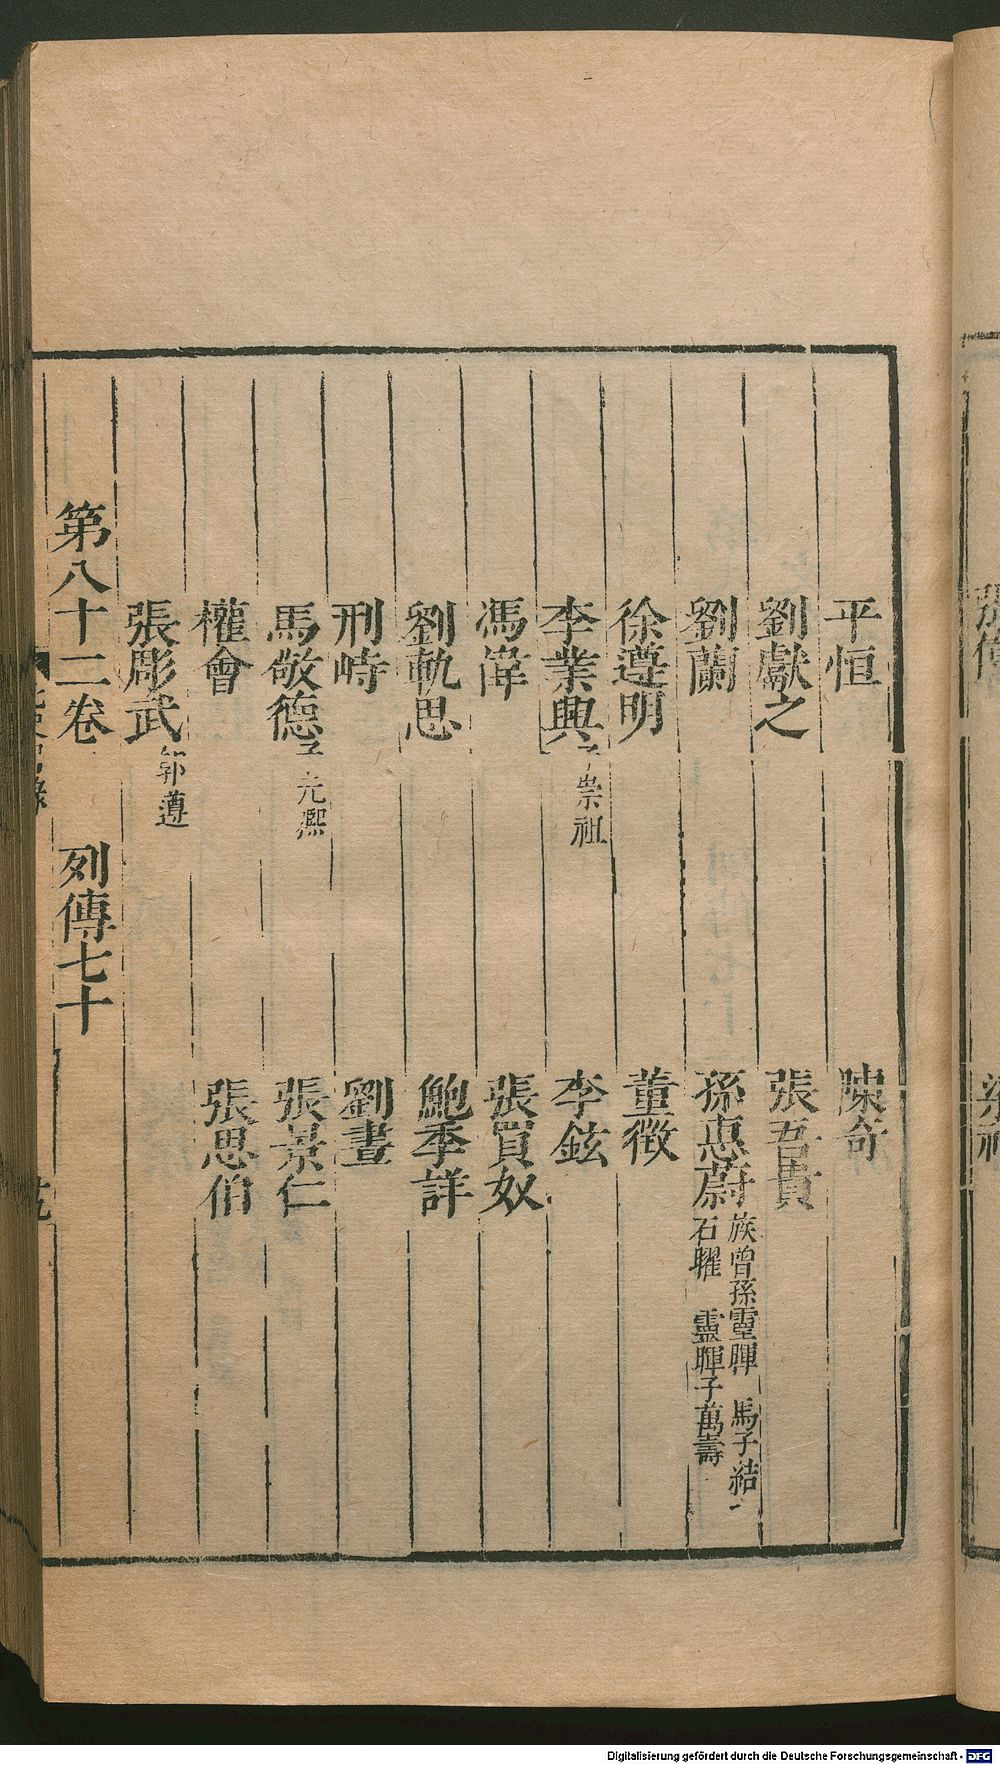 平恒 陳奇
劉獻之 張吾貴
劉蘭 孫惠蔚 族曾孫靈暉 馬子結 石曜 靈暉子萬壽
徐遵明 董徵
李業興 子崇祖 李鉉
馮偉 張買奴
劉軌思 鮑季詳
刑峙 劉晝
馬敬德 子元熙 張景仁
權會 張思伯
張彫武 郭遵
第八十二卷 列傳七十
Digitalisierung gefördert durch die Deutsche Forschungsgemeinschaft - DFG